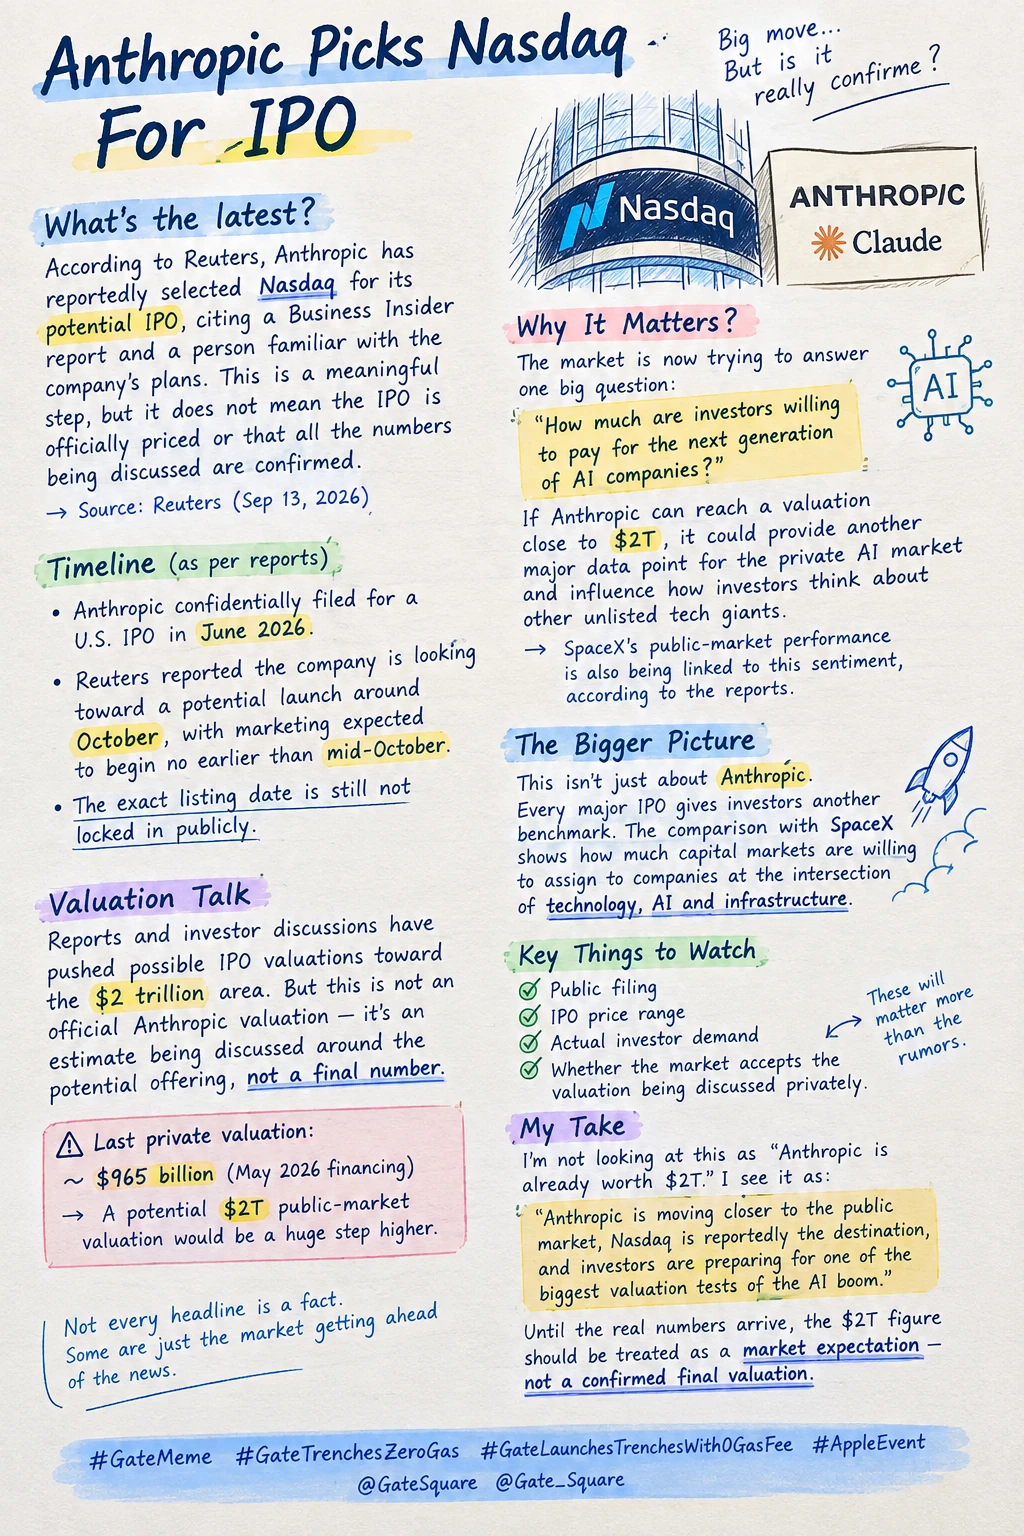 Anthropic Picks Nasdaq
For IPO
Big move...
But is it
really confirme?
Nasdaq
ANTHROP/C
Claude
What's the latest?
According to Reuters, Anthropic has
reportedly selected Nasdaq for its
potential IPO, citing a Business Insider
report and a person familiar with the
company's plans. This is a meaningful
step, but it does not mean the IPO is
officially priced or that all the numbers
being discussed are confirmed.
→ Source: Reuters (Sep 13, 2026)
Timeline (as per reports)
• Anthropic confidentially filed for a
U.S. IPO in June 2026.
• Reuters reported the company is looking
toward a potential launch around
October, with marketing expected
to begin no earlier than mid-October.
• The exact listing date is still not
locked in publicly.
Valuation Talk
Reports and investor discussions have
pushed possible IPO valuations toward
the $2 trillion area. But this is not an
official Anthropic valuation — it's an
estimate being discussed around the
potential offering, not a final number.
⚠ Last private valuation:
~ $965 billion (May 2026 financing)
→ A potential $2T public-market
valuation would be a huge step higher.
Not every headline is a fact.
Some are just the market getting ahead
of the news.
Why It Matters?
The market is now trying to answer
one big question:
"How much are investors willing
to pay for the next generation
of AI companies?"
AI
If Anthropic can reach a valuation
close to $2T, it could provide another
major data point for the private AI market
and influence how investors think about
other unlisted tech giants.
→ SpaceX's public-market performance
is also being linked to this sentiment,
according to the reports.
The Bigger Picture
This isn't just about Anthropic.
Every major IPO gives investors another
benchmark. The comparison with SpaceX
shows how much capital markets are willing
to assign to companies at the intersection
of technology, AI and infrastructure.
Key Things to Watch
Public filing
IPO price range
Actual investor demand
Whether the market accepts the
valuation being discussed privately.
These will
matter more
than the
rumors.
My Take
I'm not looking at this as "Anthropic is
already worth $2T." I see it as:
"Anthropic is moving closer to the public
market, Nasdaq is reportedly the destination,
and investors are preparing for one of the
biggest valuation tests of the AI boom."
Until the real numbers arrive, the $2T figure
should be treated as a market expectation —
not a confirmed final valuation.
#GateMeme #GateTrenchesZeroGas #GateLaunchesTrenchesWith0GasFee #AppleEvent
@GateSquare @Gate_Square